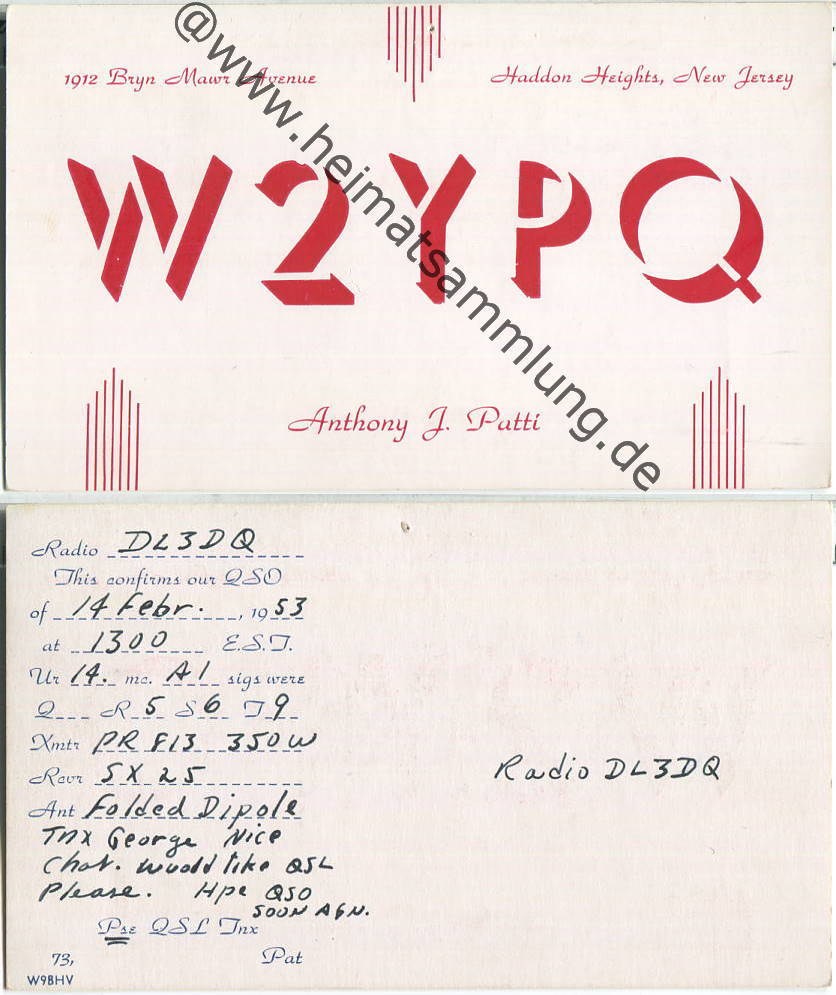 1912 Bryn Mawr Avenue
Haddon Heights, New Jersey
W2YPQ
Anthony J. Patti
@www.heimatsammlung.de
Radio DL3DQ
This confirms our QSO
of 14 Febr., 1953
at 1300 E.S.T.
Ur 14. mc. A1 sigs were
Q R 5 S 6 T 9
Xmtr PR 813 350W
Rcvr SX 25
Ant Folded Dipole
Tnx George Nice
Chat. would like QSL
Please. Hpe QSO
SOON AGN.
Pse QSL Tnx
73, Pat
W9BHV
Radio DL3DQ